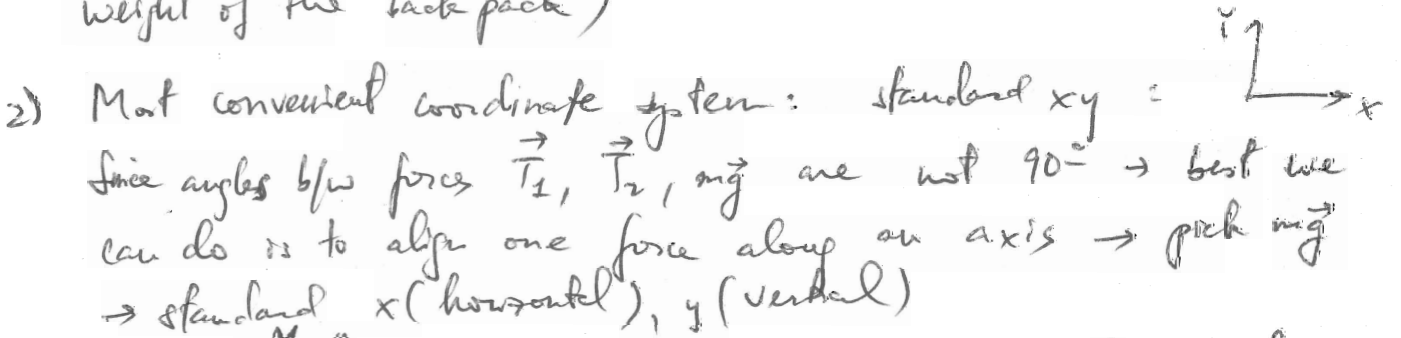 weight of the back pack)
2) Most convenient coordinate system: standard xy : Y x
Since angles b/w forces T⃗₁, T⃗₂, mg⃗ are not 90° → best we
can do is to align one force along an axis → pick mg⃗
→ standard x(horizontal), y(vertical)